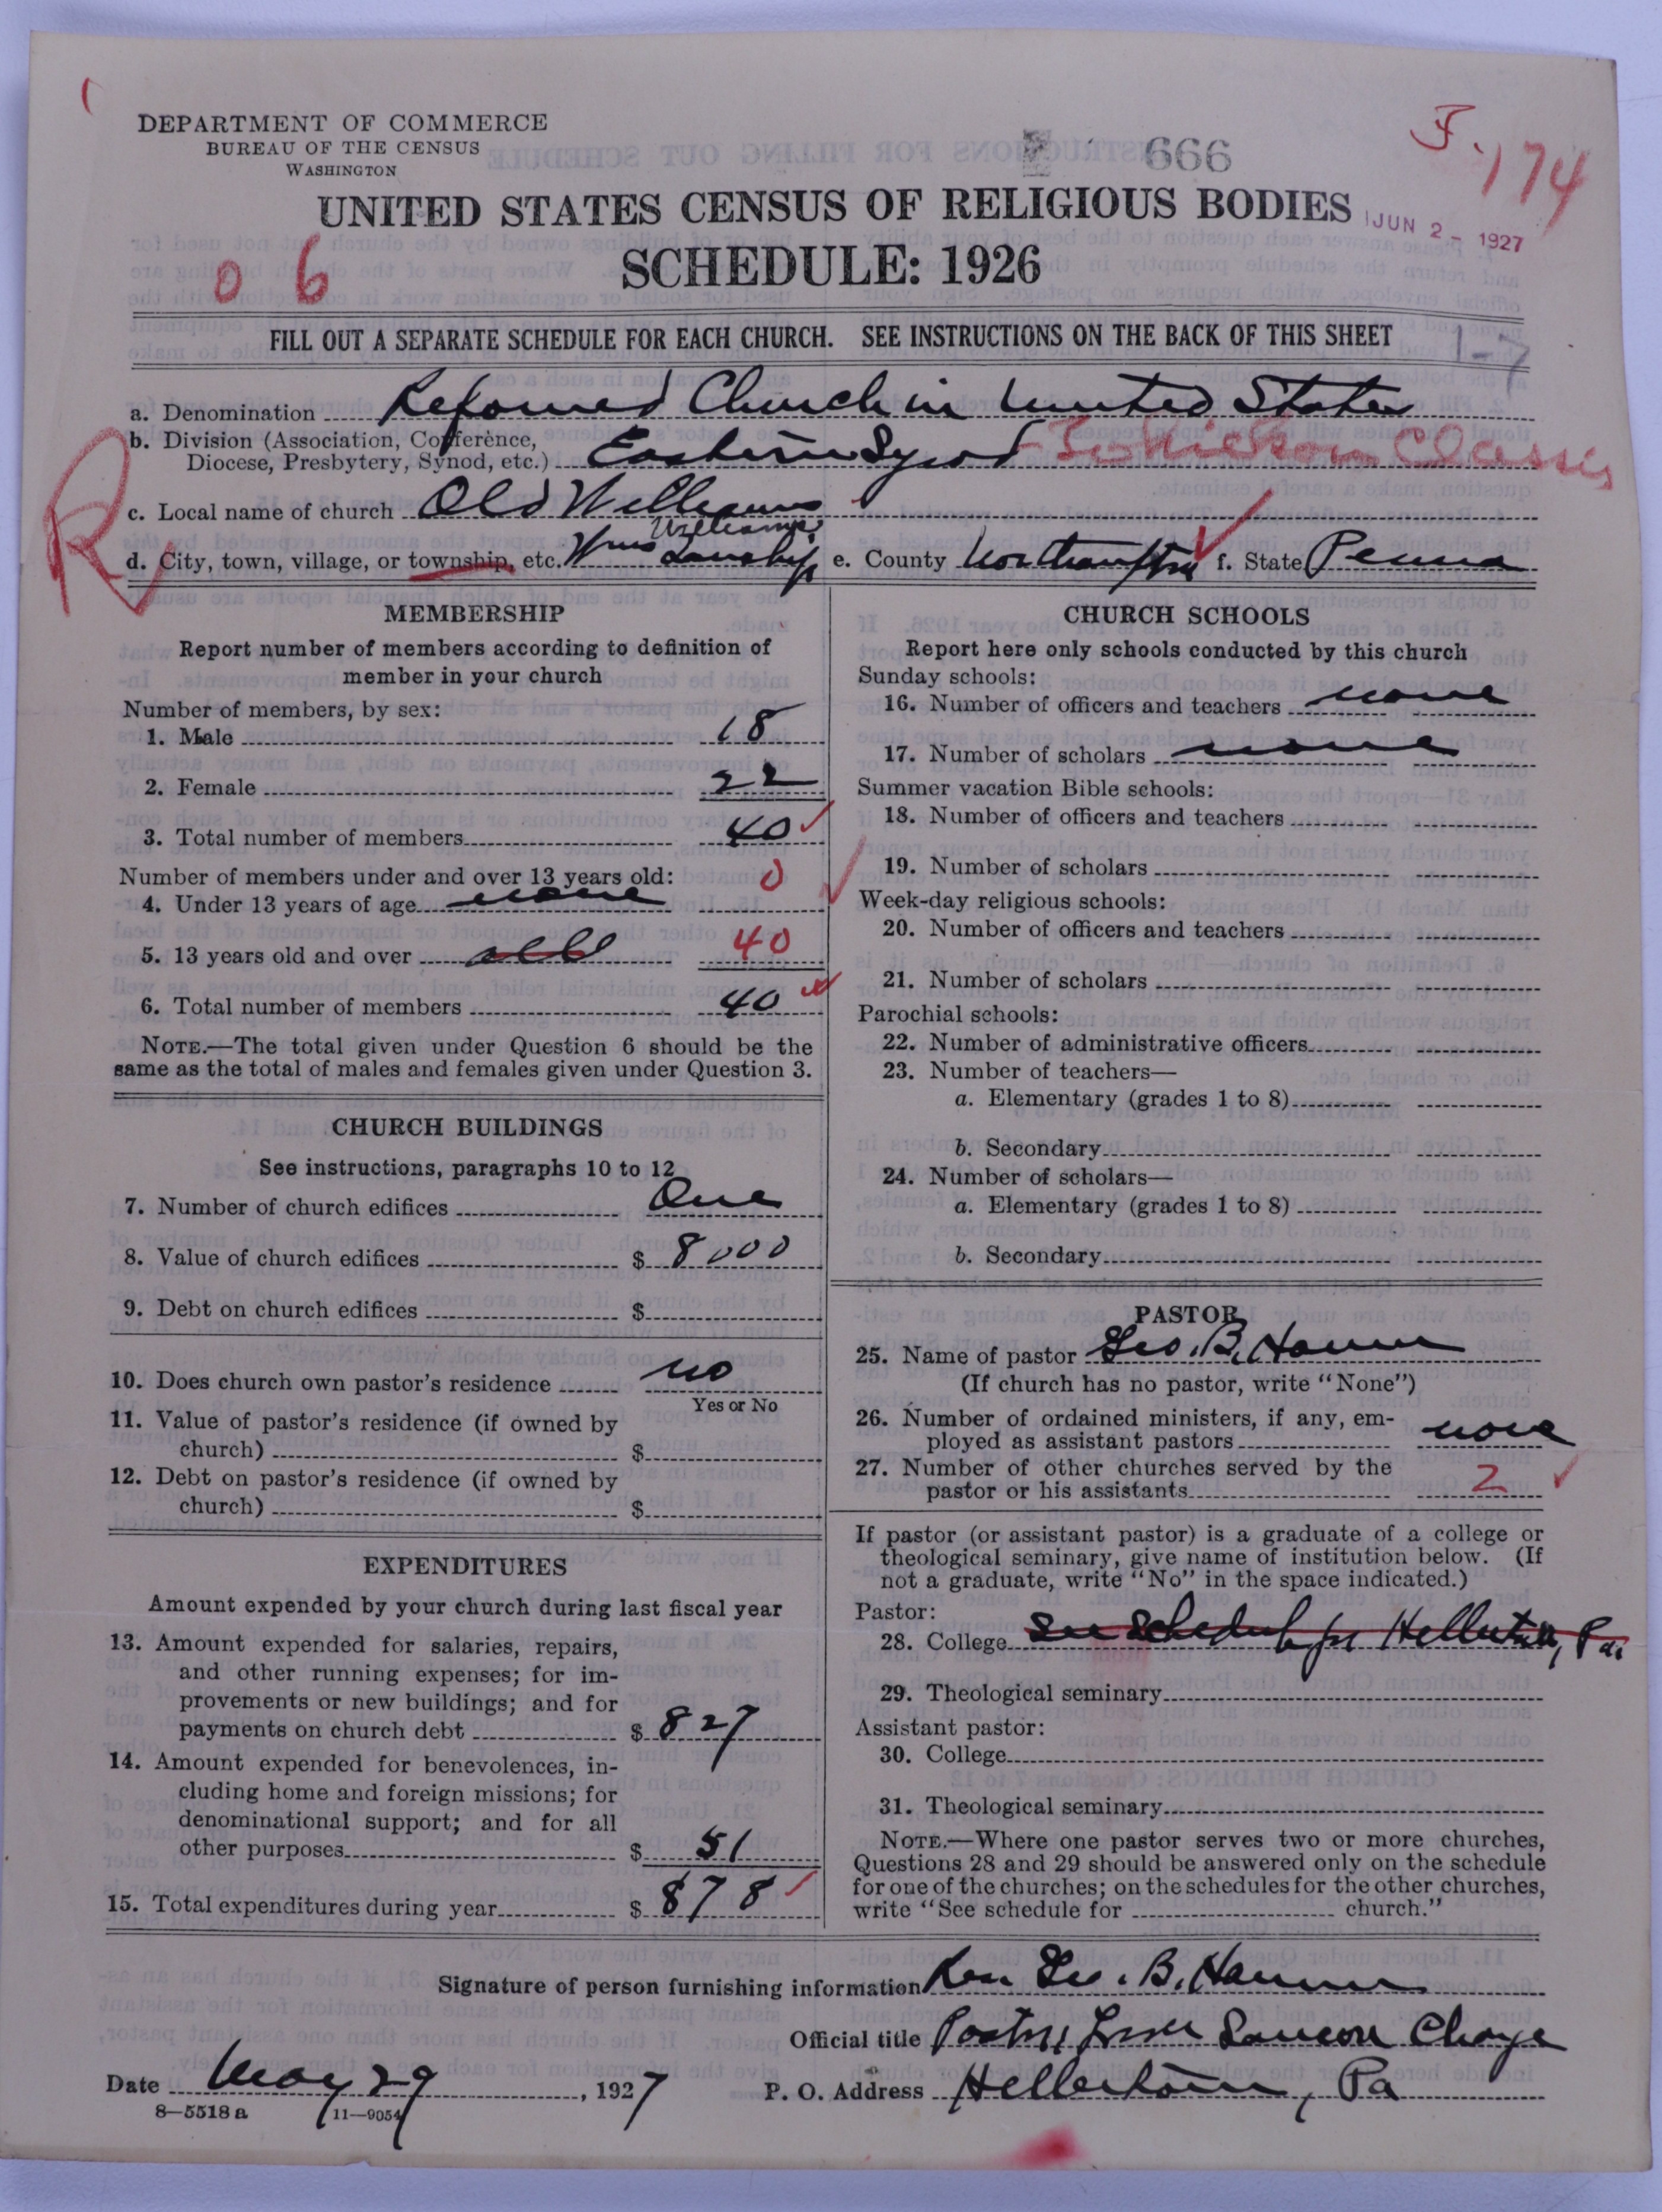 DEPARTMENT OF COMMERCE
BUREAU OF THE CENSUS
WASHINGTON
666
F. 174
UNITED STATES CENSUS OF RELIGIOUS BODIES
JUN 2 - 1927
0 6
SCHEDULE: 1926
FILL OUT A SEPARATE SCHEDULE FOR EACH CHURCH. SEE INSTRUCTIONS ON THE BACK OF THIS SHEET
1-7
a. Denomination Reformed Church in United States
b. Division (Association, Conference,
Diocese, Presbytery, Synod, etc.) Eastern Synod - Tohickon Classis
R
c. Local name of church Old Williams
Williams
d. City, town, village, or township, etc. Wms Township e. County Northampton f. State Penna
MEMBERSHIP
Report number of members according to definition of
member in your church
Number of members, by sex:
1. Male 18
2. Female 22
3. Total number of members 40
Number of members under and over 13 years old: 0
4. Under 13 years of age none
5. 13 years old and over all 40
6. Total number of members 40
NOTE.—The total given under Question 6 should be the
same as the total of males and females given under Question 3.
CHURCH BUILDINGS
See instructions, paragraphs 10 to 12
7. Number of church edifices One
8. Value of church edifices $ 8000
9. Debt on church edifices $
10. Does church own pastor's residence no
Yes or No
11. Value of pastor's residence (if owned by
church) $
12. Debt on pastor's residence (if owned by
church) $
EXPENDITURES
Amount expended by your church during last fiscal year
13. Amount expended for salaries, repairs,
and other running expenses; for im-
provements or new buildings; and for
payments on church debt $ 827
14. Amount expended for benevolences, in-
cluding home and foreign missions; for
denominational support; and for all
other purposes $ 51
15. Total expenditures during year $ 878
CHURCH SCHOOLS
Report here only schools conducted by this church
Sunday schools:
16. Number of officers and teachers none
17. Number of scholars none
Summer vacation Bible schools:
18. Number of officers and teachers
19. Number of scholars
Week-day religious schools:
20. Number of officers and teachers
21. Number of scholars
Parochial schools:
22. Number of administrative officers
23. Number of teachers—
a. Elementary (grades 1 to 8)
b. Secondary
24. Number of scholars—
a. Elementary (grades 1 to 8)
b. Secondary
PASTOR
25. Name of pastor Geo. B. Hamm
(If church has no pastor, write "None")
26. Number of ordained ministers, if any, em-
ployed as assistant pastors none
27. Number of other churches served by the
pastor or his assistants 2
If pastor (or assistant pastor) is a graduate of a college or
theological seminary, give name of institution below. (If
not a graduate, write "No" in the space indicated.)
Pastor:
28. College See schedule for Hellertown, Pa.
29. Theological seminary
Assistant pastor:
30. College
31. Theological seminary
NOTE.—Where one pastor serves two or more churches,
Questions 28 and 29 should be answered only on the schedule
for one of the churches; on the schedules for the other churches,
write "See schedule for church."
Signature of person furnishing information Rev Geo. B. Hamm
Official title Pastor, Lower Saucon Charge
Date May 29, 1927 P. O. Address Hellertown, Pa
8—5518 a 11—9054